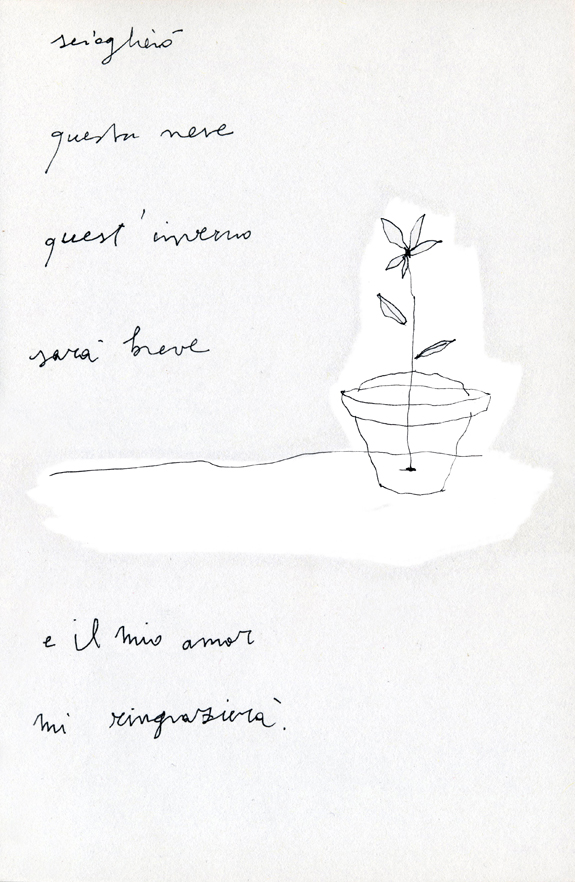 scioglierò
questa neve
quest' inverno
sarà breve
e il mio amor
mi ringrazierà.